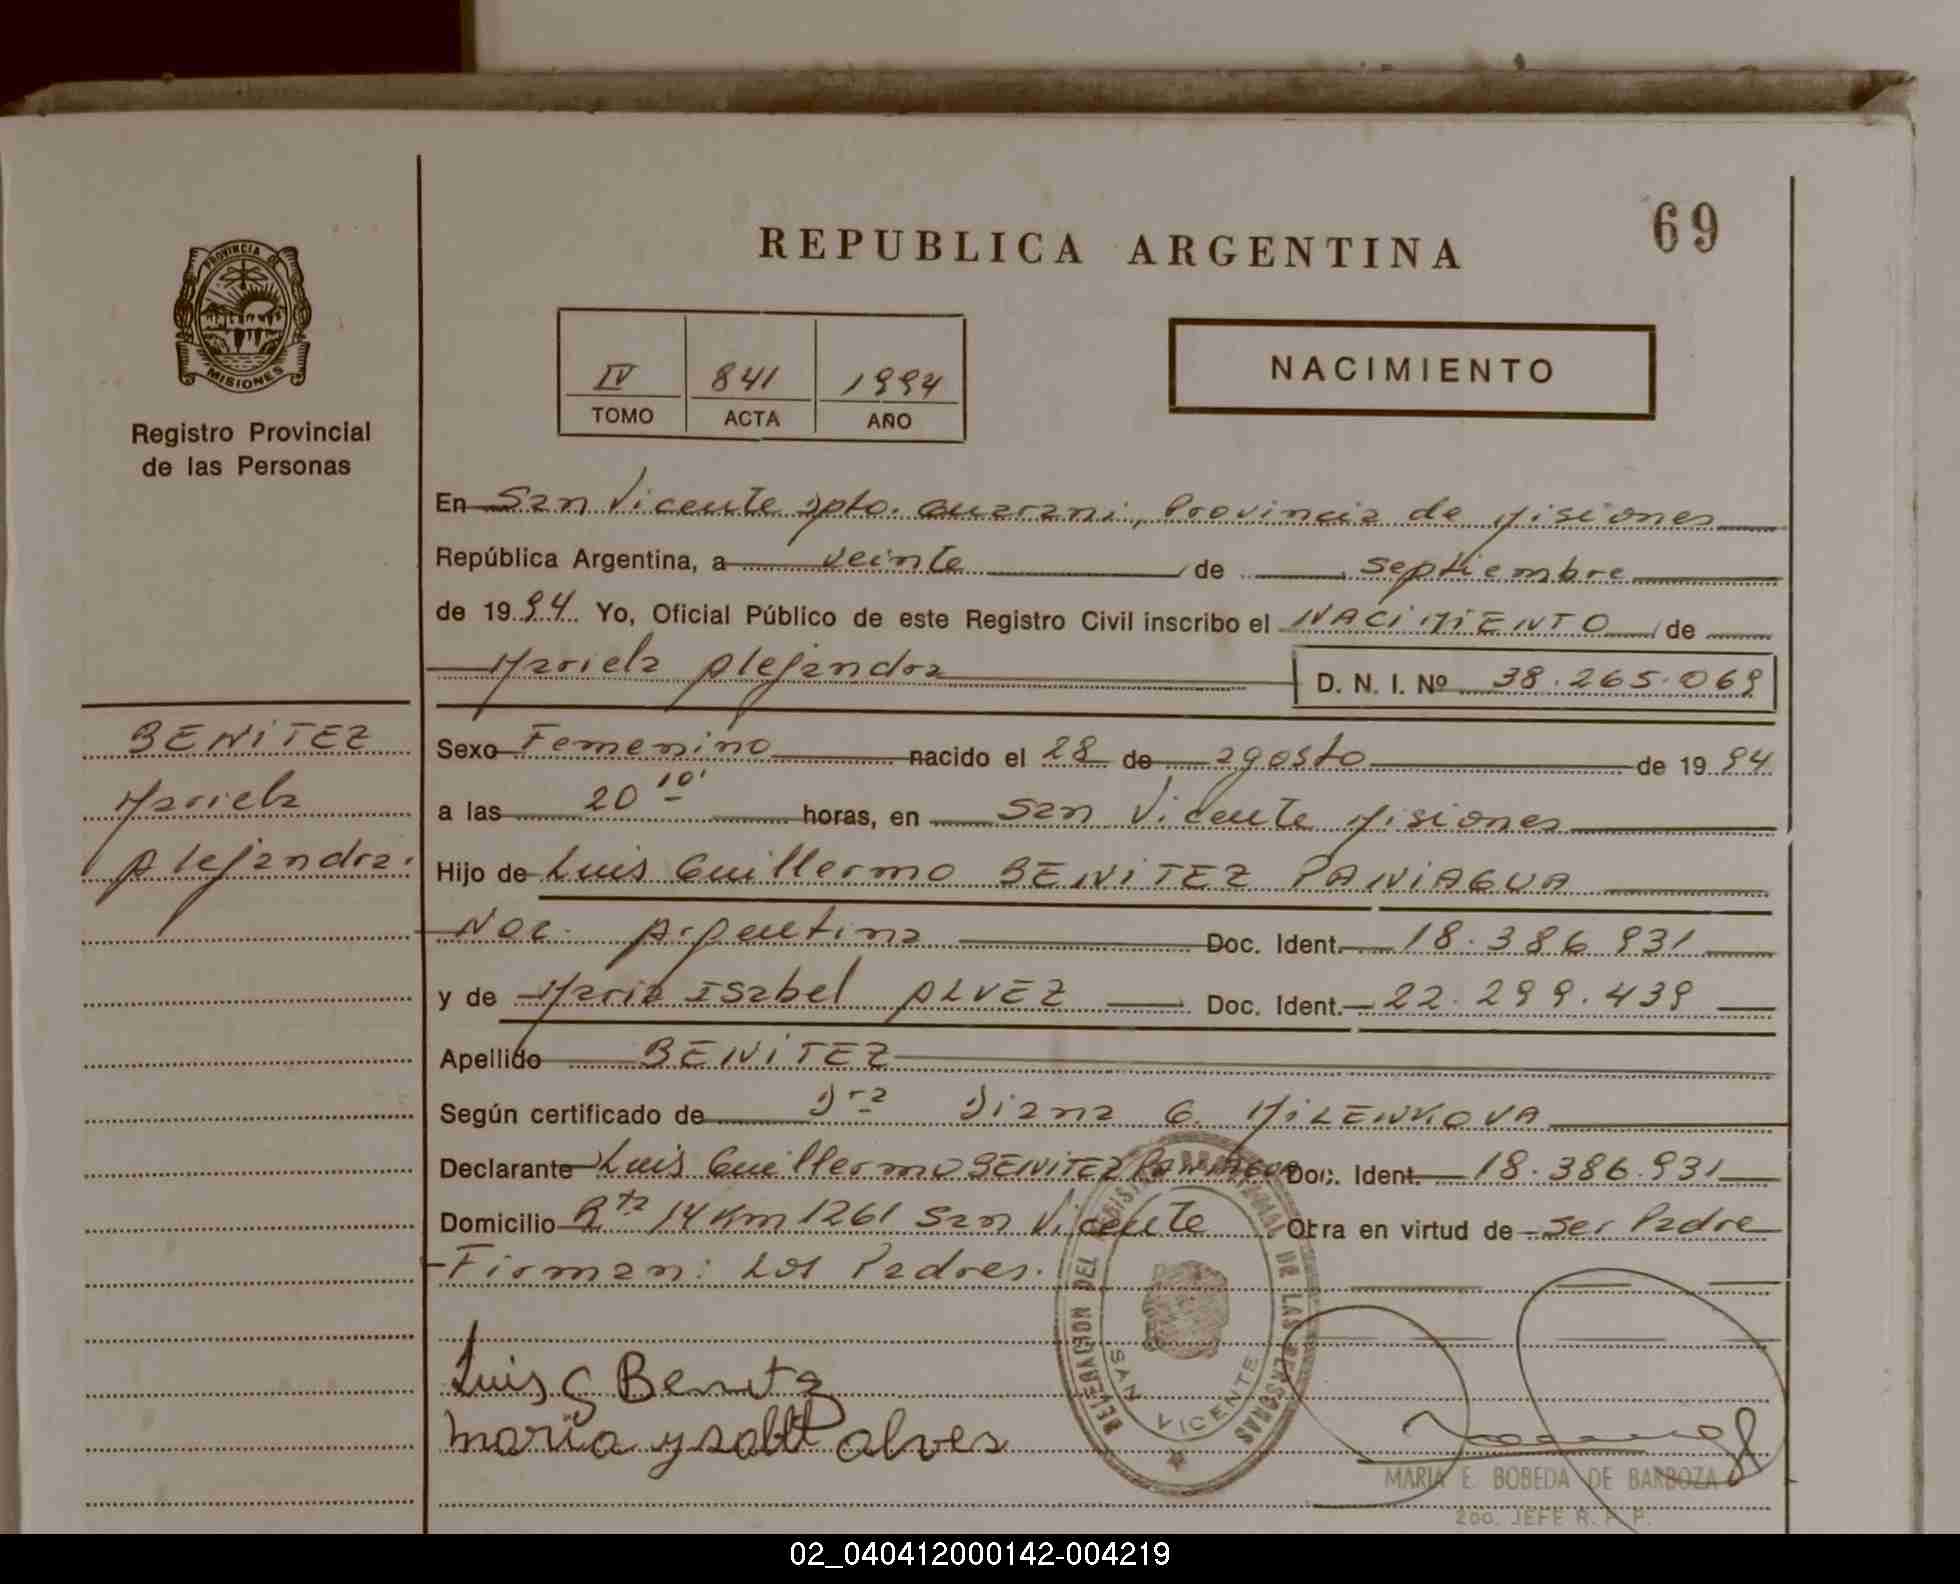 69
REPUBLICA ARGENTINA
PROVINCIA DE
MISIONES
Registro Provincial
de las Personas
IV 841 1994
TOMO ACTA AÑO
NACIMIENTO
En San Vicente Dpto. Guarani, Provincia de Misiones
República Argentina, a veinte de septiembre
de 1994 Yo, Oficial Público de este Registro Civil inscribo el NACIMIENTO de
Mariela Alejandra D. N. I. Nº 38.265.069
BENITEZ
Mariela
Alejandra.
Sexo Femenino nacido el 28 de agosto de 1994
a las 20 10' horas, en San Vicente Misiones
Hijo de Luis Guillermo BENITEZ PANIAGUA
Nac. Argentina Doc. Ident. 18.386.931
y de Maria Isabel ALVEZ Doc. Ident. 22.299.439
Apellido BENITEZ
Según certificado de Dra Diana G. MILENKOVA
Declarante Luis Guillermo BENITEZ PANIAGUA Doc. Ident. 18.386.931
Domicilio Rta 14 Km 1261 San Vicente Obra en virtud de ser Padre
Firman: Los Padres.
DELEGACION DEL REGISTRO PROVINCIAL DE LAS PERSONAS
SAN VICENTE
Luis G Benitez
maria ysabel alves
MARIA E. BOBEDA DE BARBOZA
2DO. JEFE R. P. P.
02_040412000142-004219